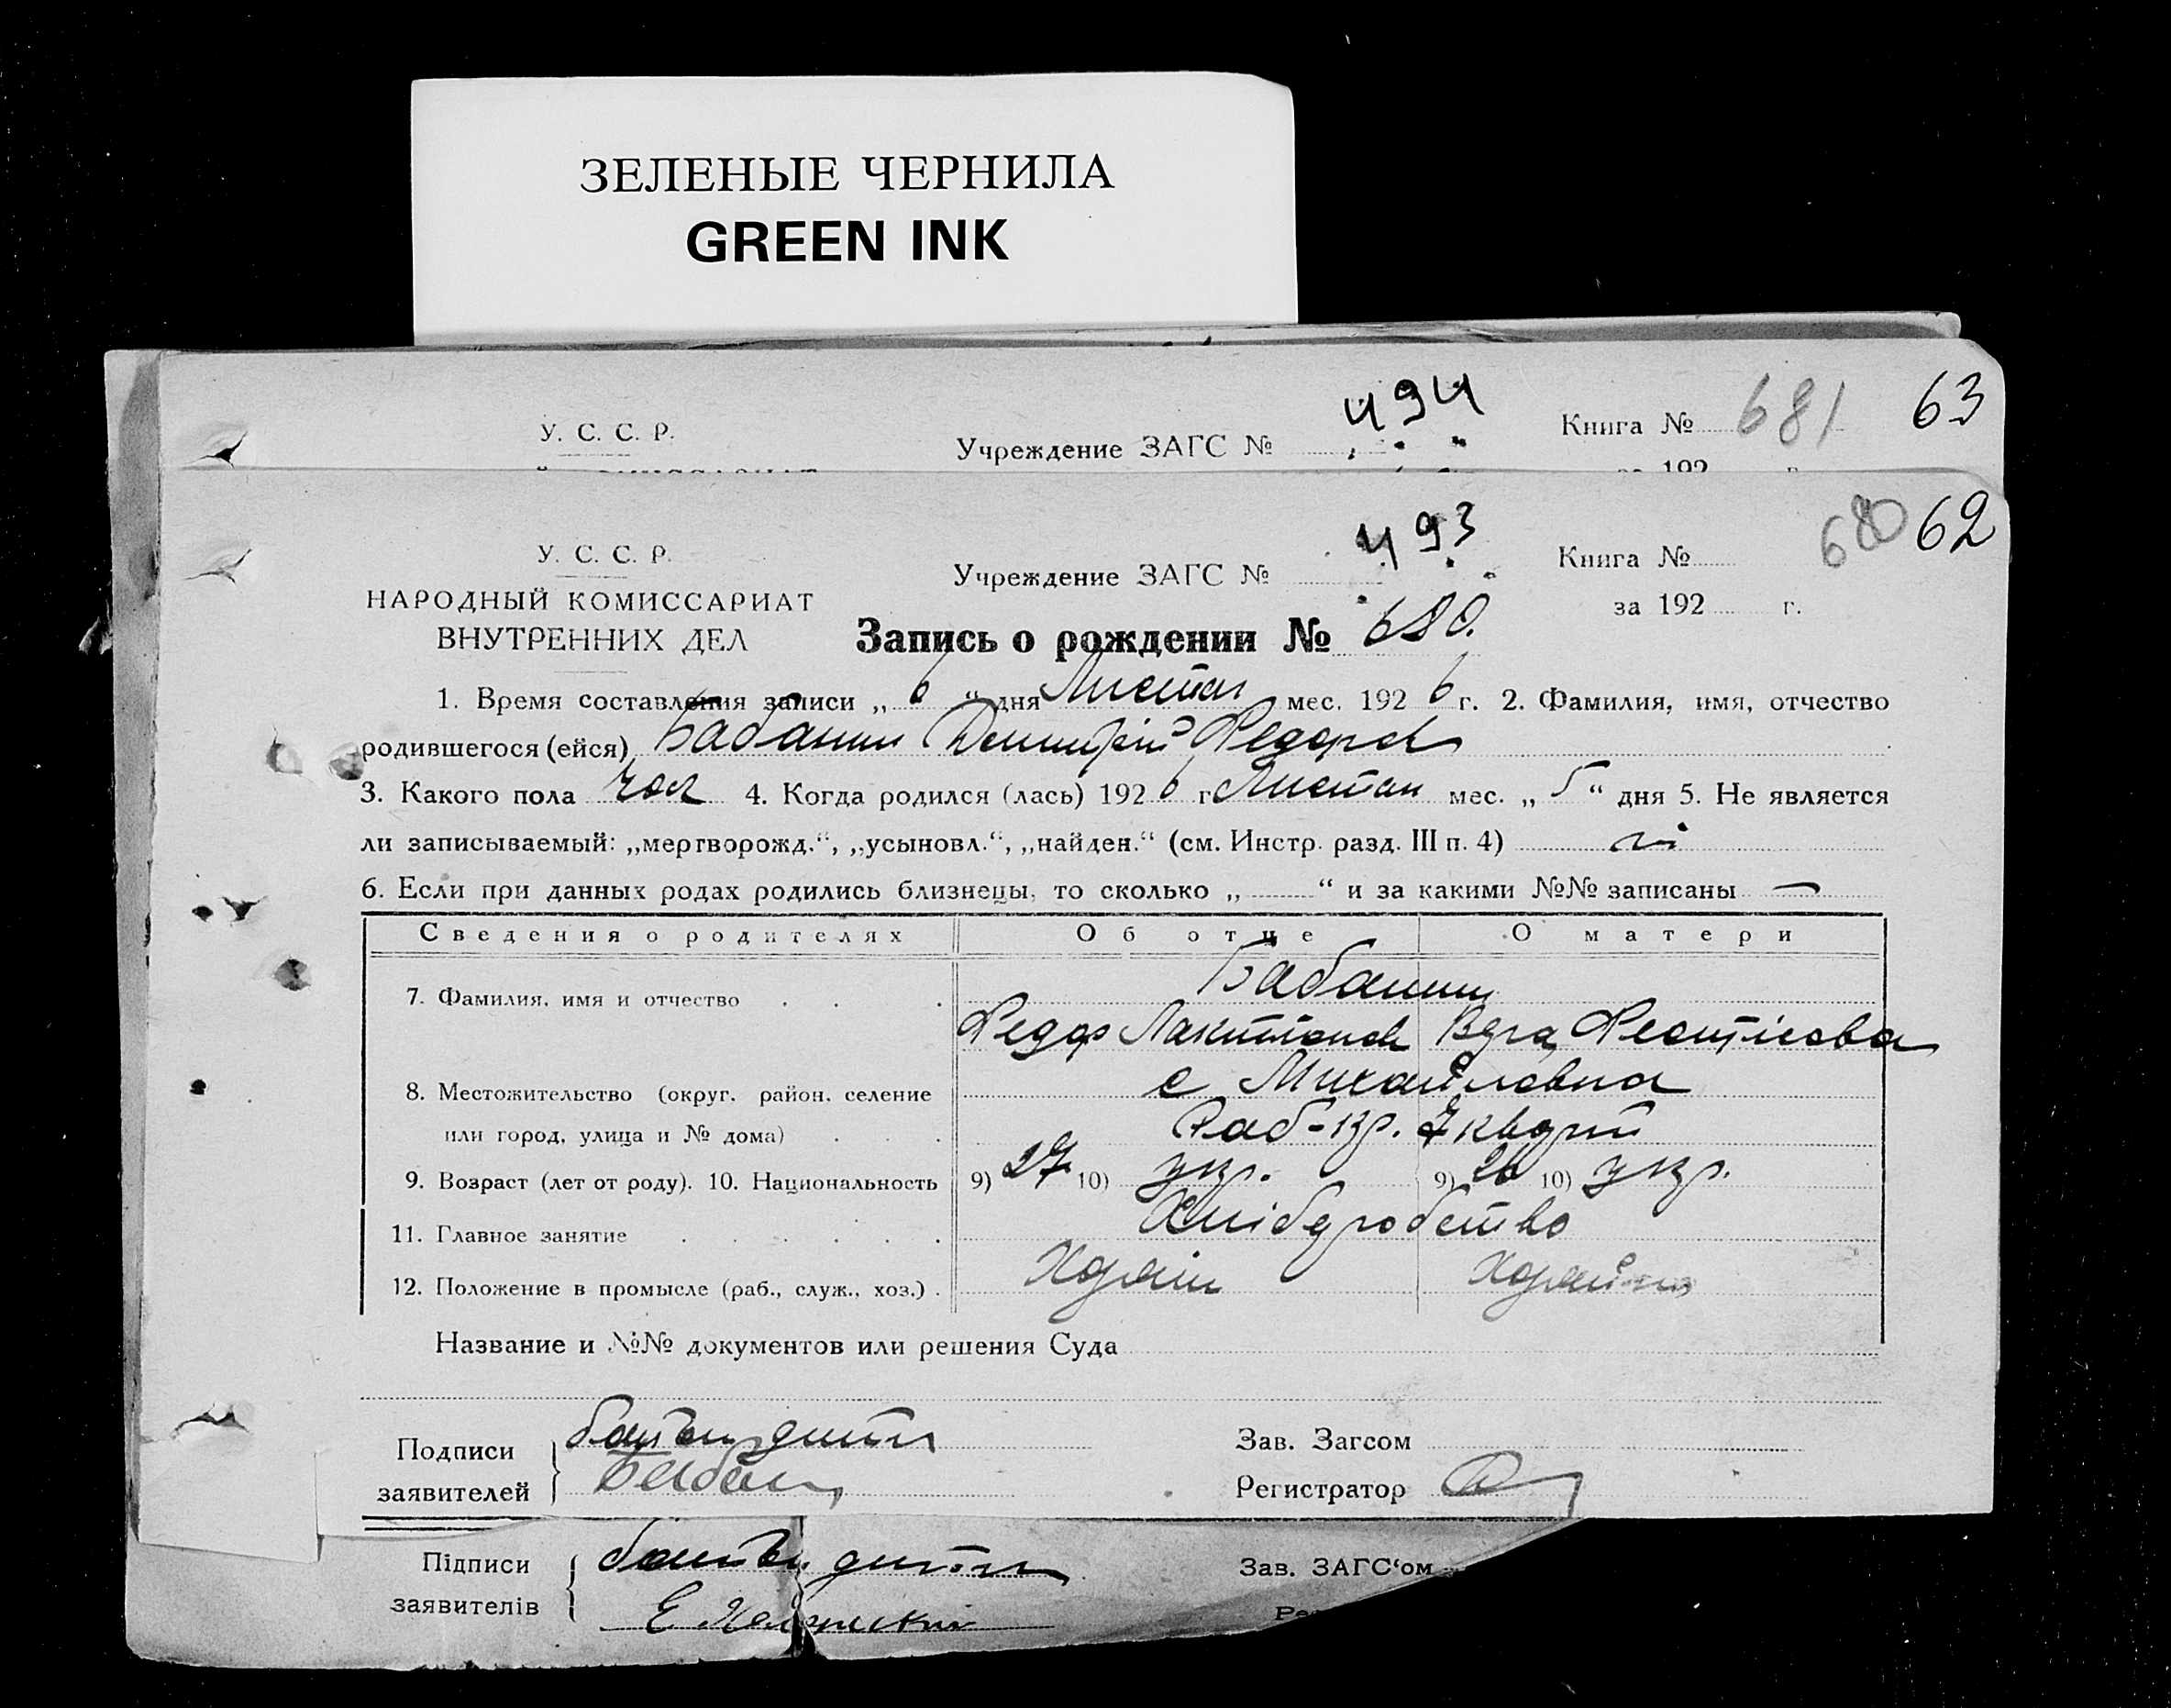 ЗЕЛЕНЫЕ ЧЕРНИЛА
GREEN INK
У. С. С. Р. Учреждение ЗАГС № 494 Книга № 681 63
за 192 г.
У. С. С. Р. Учреждение ЗАГС № 493 Книга № 680 62
НАРОДНЫЙ КОМИССАРИАТ за 192 г.
ВНУТРЕННИХ ДЕЛ Запись о рождении № 680.
1. Время составления записи „ 6 “ дня Листоп мес. 192 6 г. 2. Фамилия, имя, отчество
родившегося (ейся) Бабанин Дмитрій Федоров
3. Какого пола чол 4. Когда родился (лась) 192 6 г Листоп мес. „ 5 “ дня 5. Не является
ли записываемый: „мертворожд.“, „усыновл.“, „найден.“ (см. Инстр. разд. III п. 4) ні
6. Если при данных родах родились близнецы, то сколько „ “ и за какими №№ записаны —
Сведения о родителях Об отце О матери
7. Фамилия, имя и отчество Бабанин
Федор Віра
8. Местожительство (округ, район, селение с Михайловка
или город, улица и № дома) Раб-кр.
9. Возраст (лет от роду). 10. Национальность 9) 27 10) укр. 9) 26 10) укр.
11. Главное занятие Хліборобство
12. Положение в промысле (раб., служ., хоз.)
Название и №№ документов или решения Суда
Подписи батько дитини Зав. Загсом
заявителей Бабан Регистратор
Підписи батько дитини Зав. ЗАГС‘ом
заявителів Е